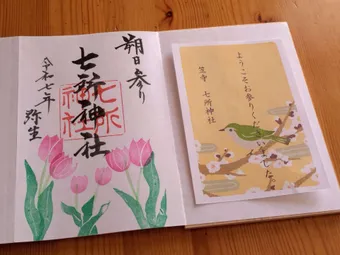 朔日参り
七所神社
七所神社
令和七年 弥生
ようこそお参りくださいました
笠寺 七所神社